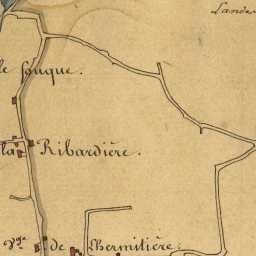 Lande
le fouque.
la Ribardière.
V.ge de L'hermitière.